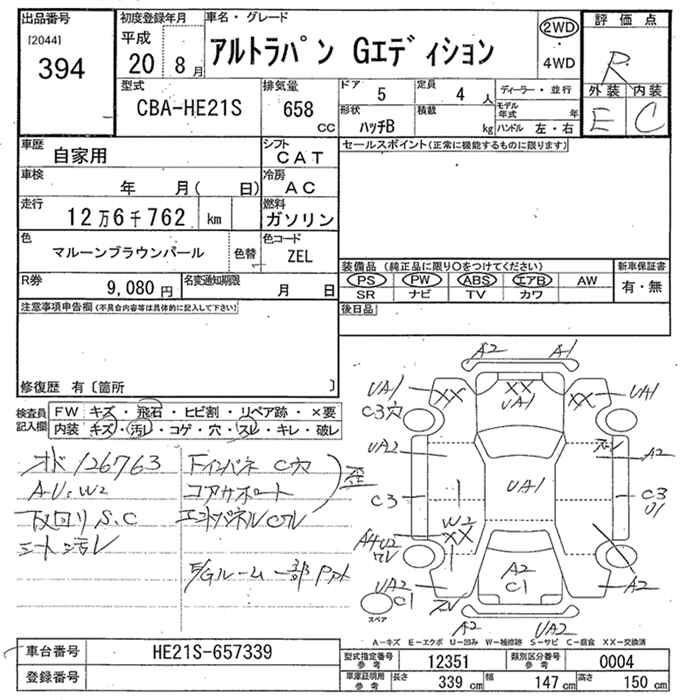 出品番号
[2044]
394
初度登録年月
平成
20年 8月
車名・グレード
アルトラパン Gエディション
2WD
・
4WD
評価点
R
外装 内装
E C
型式
CBA-HE21S
排気量
658 cc
ドア 5
定員 4 人
形状 ハッチB
積載 kg
ディーラー・並行
モデル年式 年
ハンドル 左・右
車歴
自家用
シフト
CAT
セールスポイント(正常に機能するものに限ります)
車検
年 月( 日)
冷房
AC
走行
12万6千762 km
燃料
ガソリン
色
マルーンブラウンパール
色替
色コード
ZEL
R券
9,080円
名変通知期限
月 日
装備品 (純正品に限り○をつけてください)
新車保証書
PS PW ABS エアB AW
SR ナビ TV カワ
有・無
注意事項申告欄(不具合内容等は具体的に記入して下さい)
後日品
修復歴 有〔箇所 〕
検査員
記入欄
FW キズ・飛石・ヒビ割・リペア跡・×要
内装 キズ・汚レ・コゲ・穴・スレ・キレ・破レ
オド 126763
A.U.W2
下回り S.C
シート汚レ
Fインパネ C穴
コアサポート
エンドパネルCワレ
歪
E/Gルーム一部
A2 A1
UA1
C3穴
XX
XX
UA1
XX
UA1
UA2
A2
C3
UA1
C3
U1
W2
XX
A4U2
ワレ
UA2
A2
C1
A2
C1
スペア
A2
UA2
A-キズ E-エクボ U-凹み W-補修跡 S-サビ C-腐食 XX-交換済
車台番号
HE21S-657339
登録番号
型式指定番号
参考
12351
類別区分番号
参考
0004
車庫証明用
参考
長さ 339 cm
幅 147 cm
高さ 150 cm